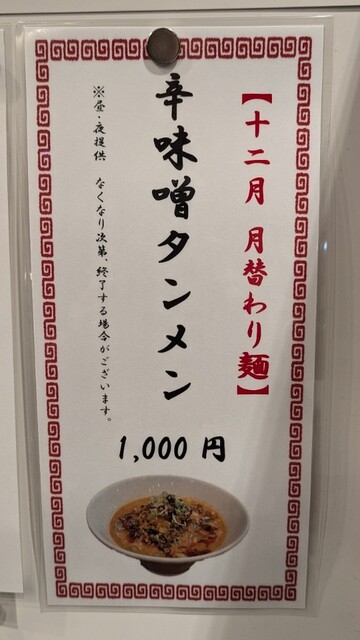 【十二月 月替わり麺】
辛味噌タンメン
※昼・夜提供 なくなり次第、終了する場合がございます。
1,000 円